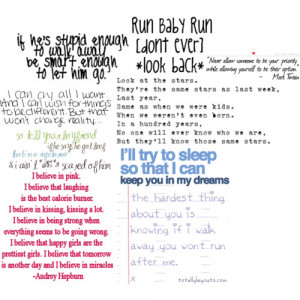 if he's stupid enough
to walk away
be smart enough
to let him go.
Run Baby Run
[dont ever]
*look back*
"Never allow someone to be your priority
while allowing yourself to be their option."
- Mark Twain
Look at the stars.
They're the same stars as last week,
Last year,
Same as when were kids.
When we weren't even born.
In a hundred years,
No one will ever know who are,
But they'll know those same stars.
I can cry all I want
And I can wish for things
to be different. But that
won't change reality...
so tell your boyfriend
if he says he got beef
that i'm a vegetarian
& i ain't scared of him
I'll try to sleep
so that I can
keep you in my dreams
I believe in pink.
I believe that laughing
is the best calorie burner.
I believe in kissing, kissing a lot.
I believe in being strong when
everything seems to be going wrong.
I believe that happy girls are the
prettiest girls. I believe that tomorrow
is another day and I believe in miracles
-Audrey Hepburn
the hardest thing
about you is
knowing if i walk
away you wont run
after me.
x
totallylayouts.com